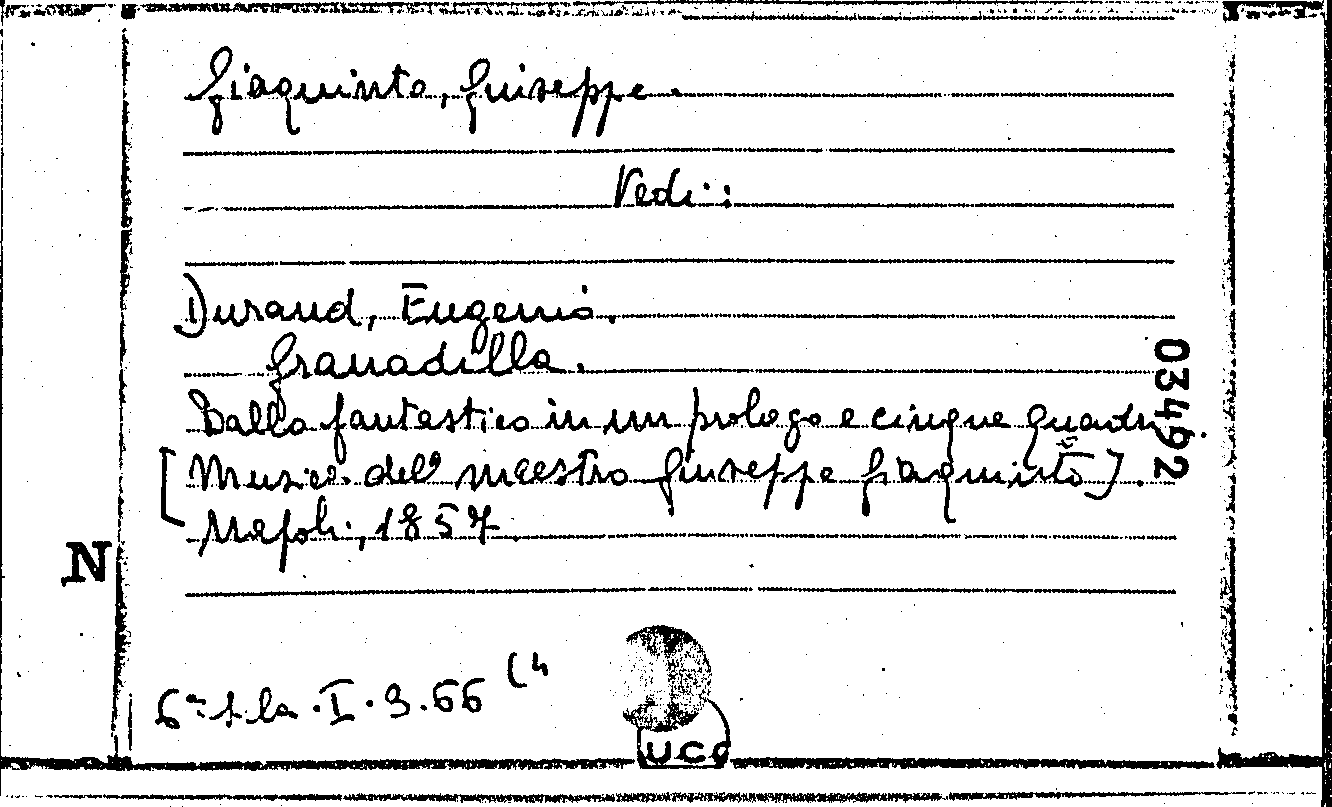 Giaquinto, Giuseppe.
Vedi:
Durand, Eugenio.
Granadilla.
Ballo fantastico in un prologo e cinque quadri.
[Musica del maestro Giuseppe Giaquinto].
Napoli, 1857
03492
N
6ª Sala. I. 9. 66 (4
UCC